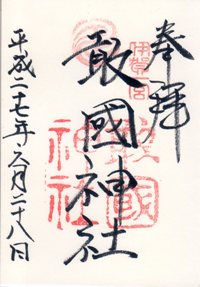 奉拝
伊賀一宮
敢國神社
敢國神社
平成二十七年三月二十八日